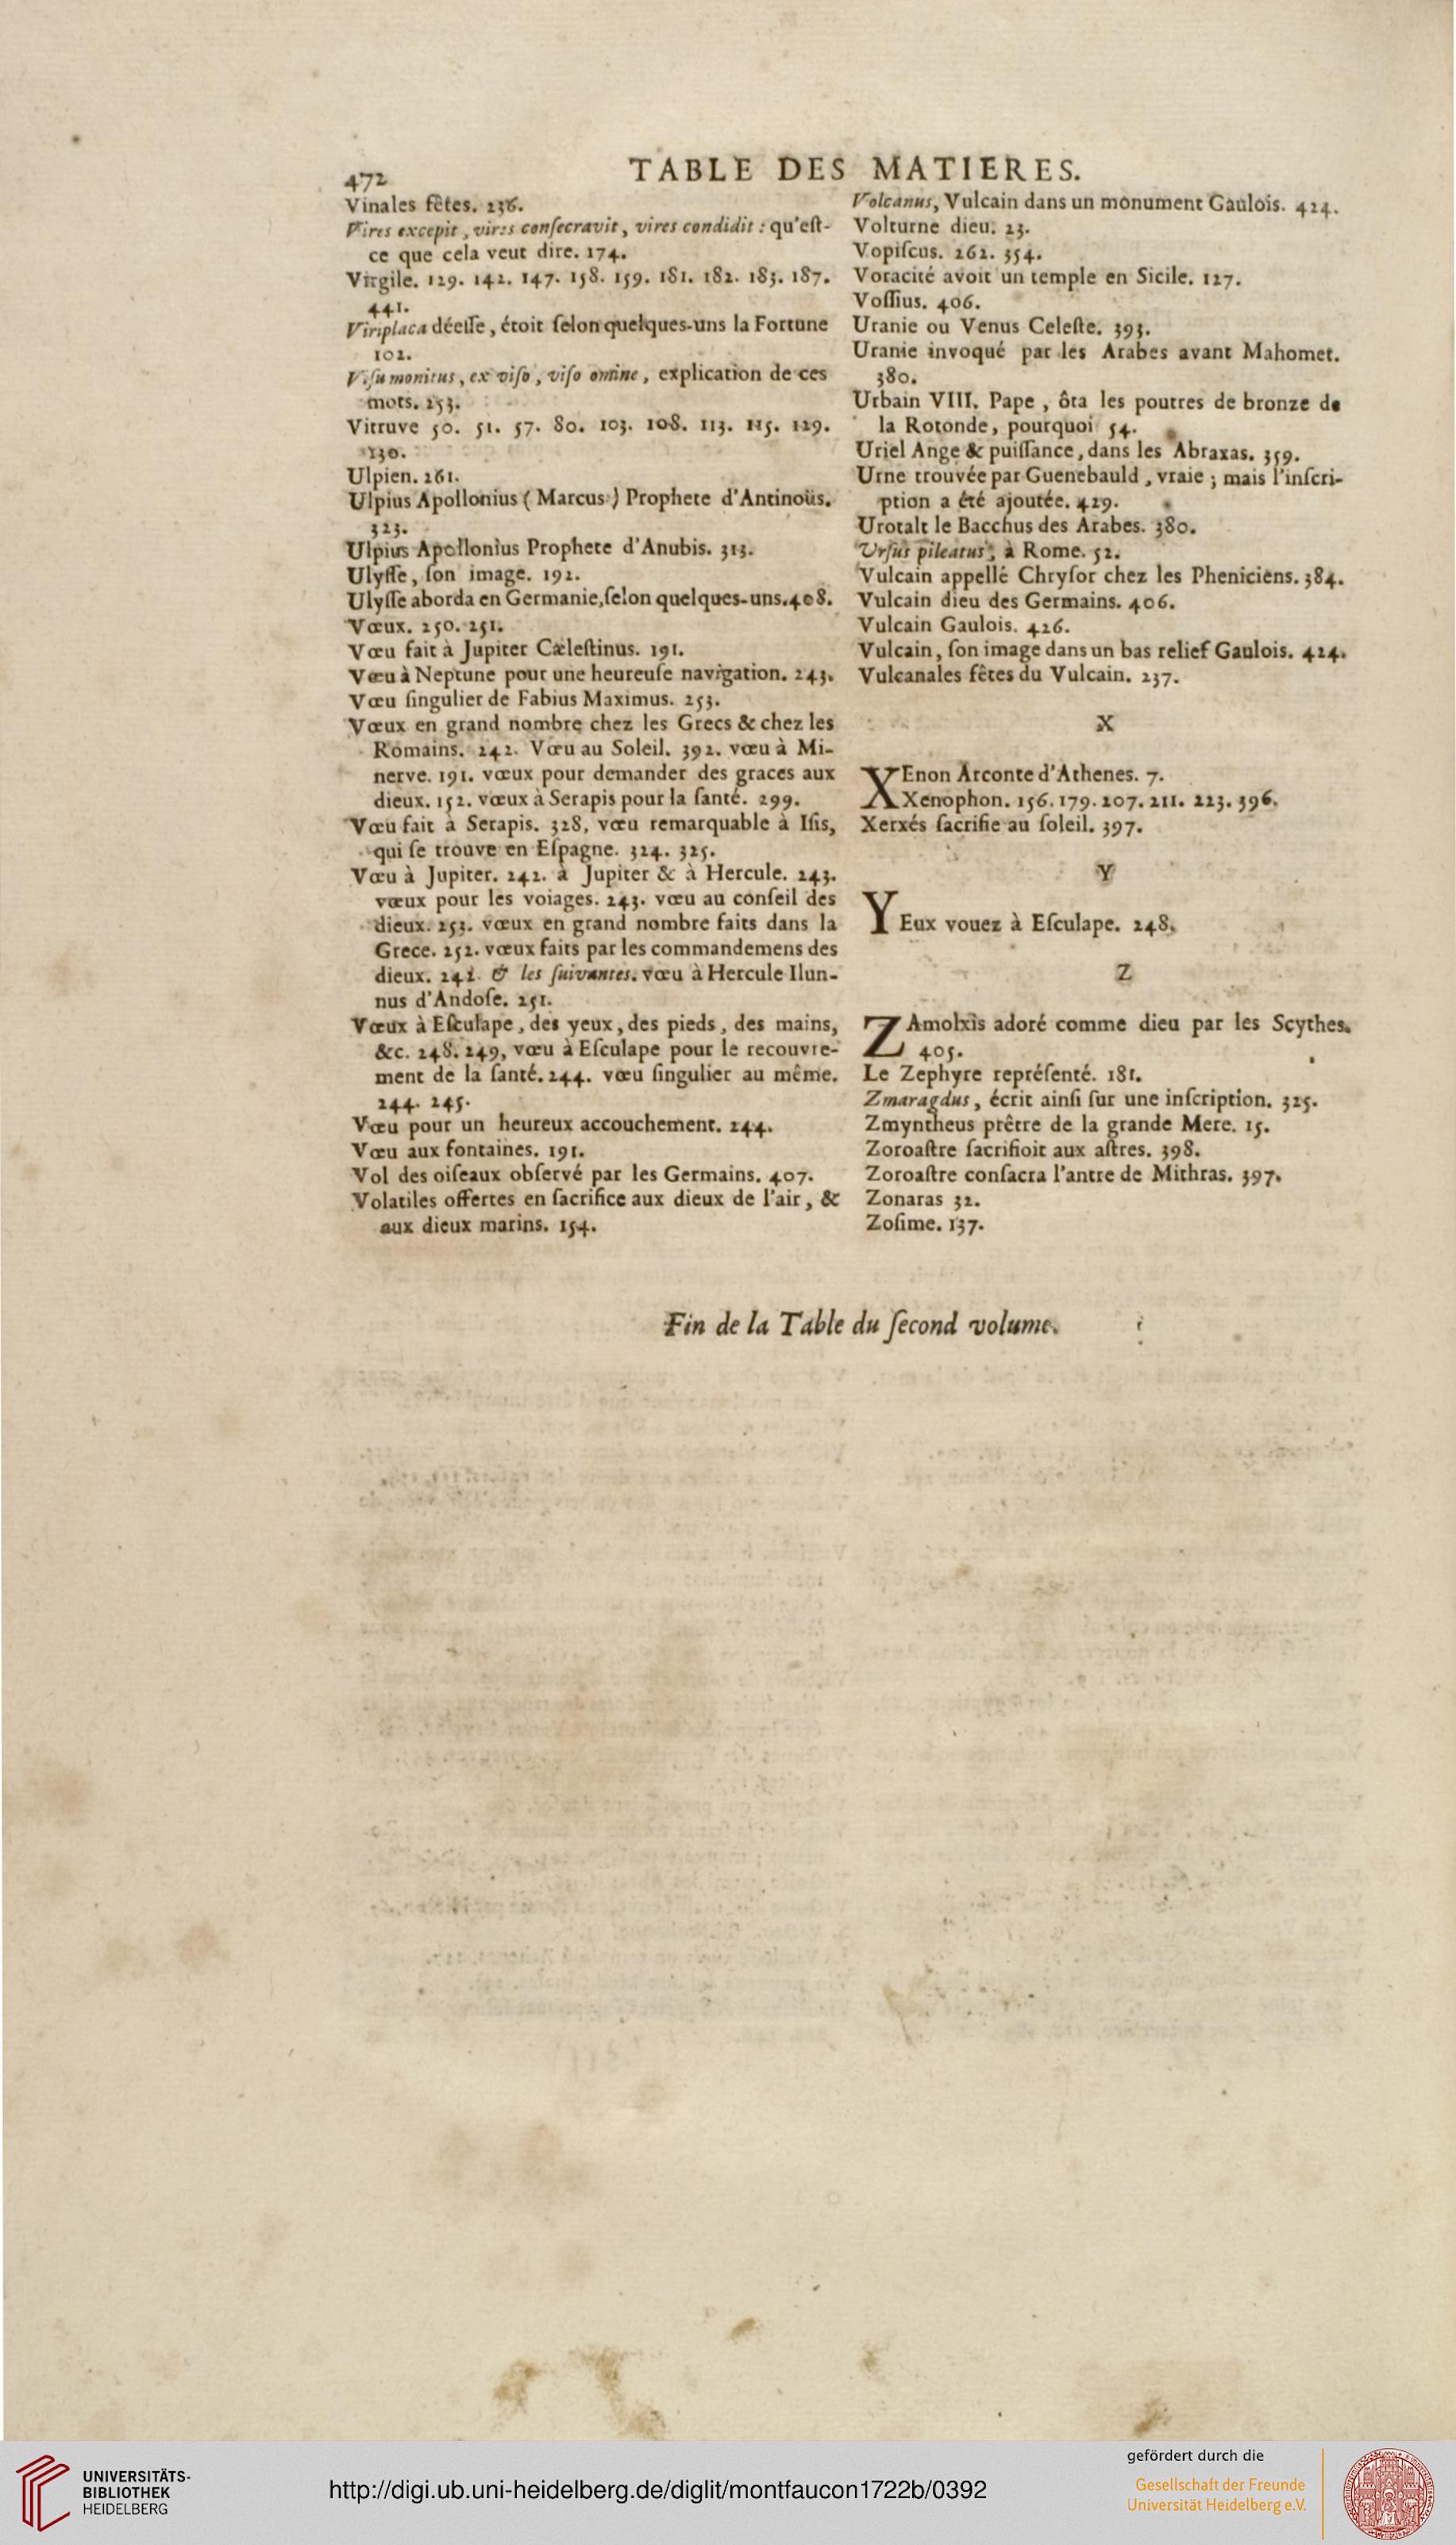 472
TABLE DES MATIERES.
Vinales fêtes. 236.
Vires excepit, vires conſecravit, vires condidit : qu'eſt-
ce que cela veut dire. 174.
Virgile. 129. 142. 147. 158. 159. 181. 182. 183. 187.
441.
Viriplaca déeſſe, étoit ſelon quelques-uns la Fortune
102.
Viſu monitus, ex viſo, viſo omine, explication de ces
mots. 253.
Vitruve 50. 51. 57. 80. 103. 108. 113. 115. 129.
130.
Ulpien. 261.
Ulpius Apollonius ( Marcus ) Prophete d'Antinoüs.
323.
Ulpius Apollonius Prophete d'Anubis. 313.
Ulyſſe, ſon image. 192.
Ulyſſe aborda en Germanie, ſelon quelques-uns. 408.
Vœux. 250. 251.
Vœu fait à Jupiter Cæleſtinus. 191.
Vœu à Neptune pour une heureuſe navigation. 243.
Vœu ſingulier de Fabius Maximus. 253.
Vœux en grand nombre chez les Grecs & chez les
Romains. 242. Vœu au Soleil. 392. vœu à Mi-
nerve. 191. vœux pour demander des graces aux
dieux. 152. vœux à Serapis pour la ſanté. 299.
Vœu fait à Serapis. 328, vœu remarquable à Iſis,
qui ſe trouve en Eſpagne. 324. 325.
Vœu à Jupiter. 242. à Jupiter & à Hercule. 243.
vœux pour les voiages. 243. vœu au conſeil des
dieux. 253. vœux en grand nombre faits dans la
Grece. 252. vœux faits par les commandemens des
dieux. 242. & les ſuivantes. vœu à Hercule Ilun-
nus d'Andoſe. 251.
Vœux à Eſculape, des yeux, des pieds, des mains,
&c. 248. 249, vœu à Eſculape pour le recouvre-
ment de la ſanté. 244. vœu ſingulier au même.
244. 245.
Vœu pour un heureux accouchement. 244.
Vœu aux fontaines. 191.
Vol des oiſeaux obſervé par les Germains. 407.
Volatiles offertes en ſacrifice aux dieux de l'air, &
aux dieux marins. 154.
Volcanus, Vulcain dans un monument Gaulois. 424.
Volturne dieu. 23.
Vopiſcus. 262. 354.
Voracité avoit un temple en Sicile. 127.
Voſſius. 406.
Uranie ou Venus Celeſte. 393.
Uranie invoqué par les Arabes avant Mahomet.
380.
Urbain VIII. Pape, ôta les poutres de bronze de
la Rotonde, pourquoi 54.
Uriel Ange & puiſſance, dans les Abraxas. 359.
Urne trouvée par Guenebauld, vraie ; mais l'inſcri-
ption a été ajoutée. 429.
Urotalt le Bacchus des Arabes. 380.
Urſus pileatus, à Rome. 52.
Vulcain appellé Chryſor chez les Pheniciens. 384.
Vulcain dieu des Germains. 406.
Vulcain Gaulois. 426.
Vulcain, ſon image dans un bas relief Gaulois. 424.
Vulcanales fêtes du Vulcain. 237.
X
XEnon Arconte d'Athenes. 7.
Xenophon. 156. 179. 207. 211. 223. 396.
Xerxés ſacrifie au ſoleil. 397.
Y
YEux vouez à Eſculape. 248.
Z
ZAmolxis adoré comme dieu par les Scythes.
405.
Le Zephyre repréſenté. 181.
Zmaragdus, écrit ainſi ſur une inſcription. 325.
Zmyntheus prêtre de la grande Mere. 15.
Zoroaſtre ſacrifioit aux aſtres. 398.
Zoroaſtre conſacra l'antre de Mithras. 397.
Zonaras 32.
Zoſime. 137.
Fin de la Table du ſecond volume.
UNIVERSITÄTS-
BIBLIOTHEK
HEIDELBERG
http://digi.ub.uni-heidelberg.de/diglit/montfaucon1722b/0392
gefördert durch die
Gesellschaft der Freunde
Universität Heidelberg e.V.